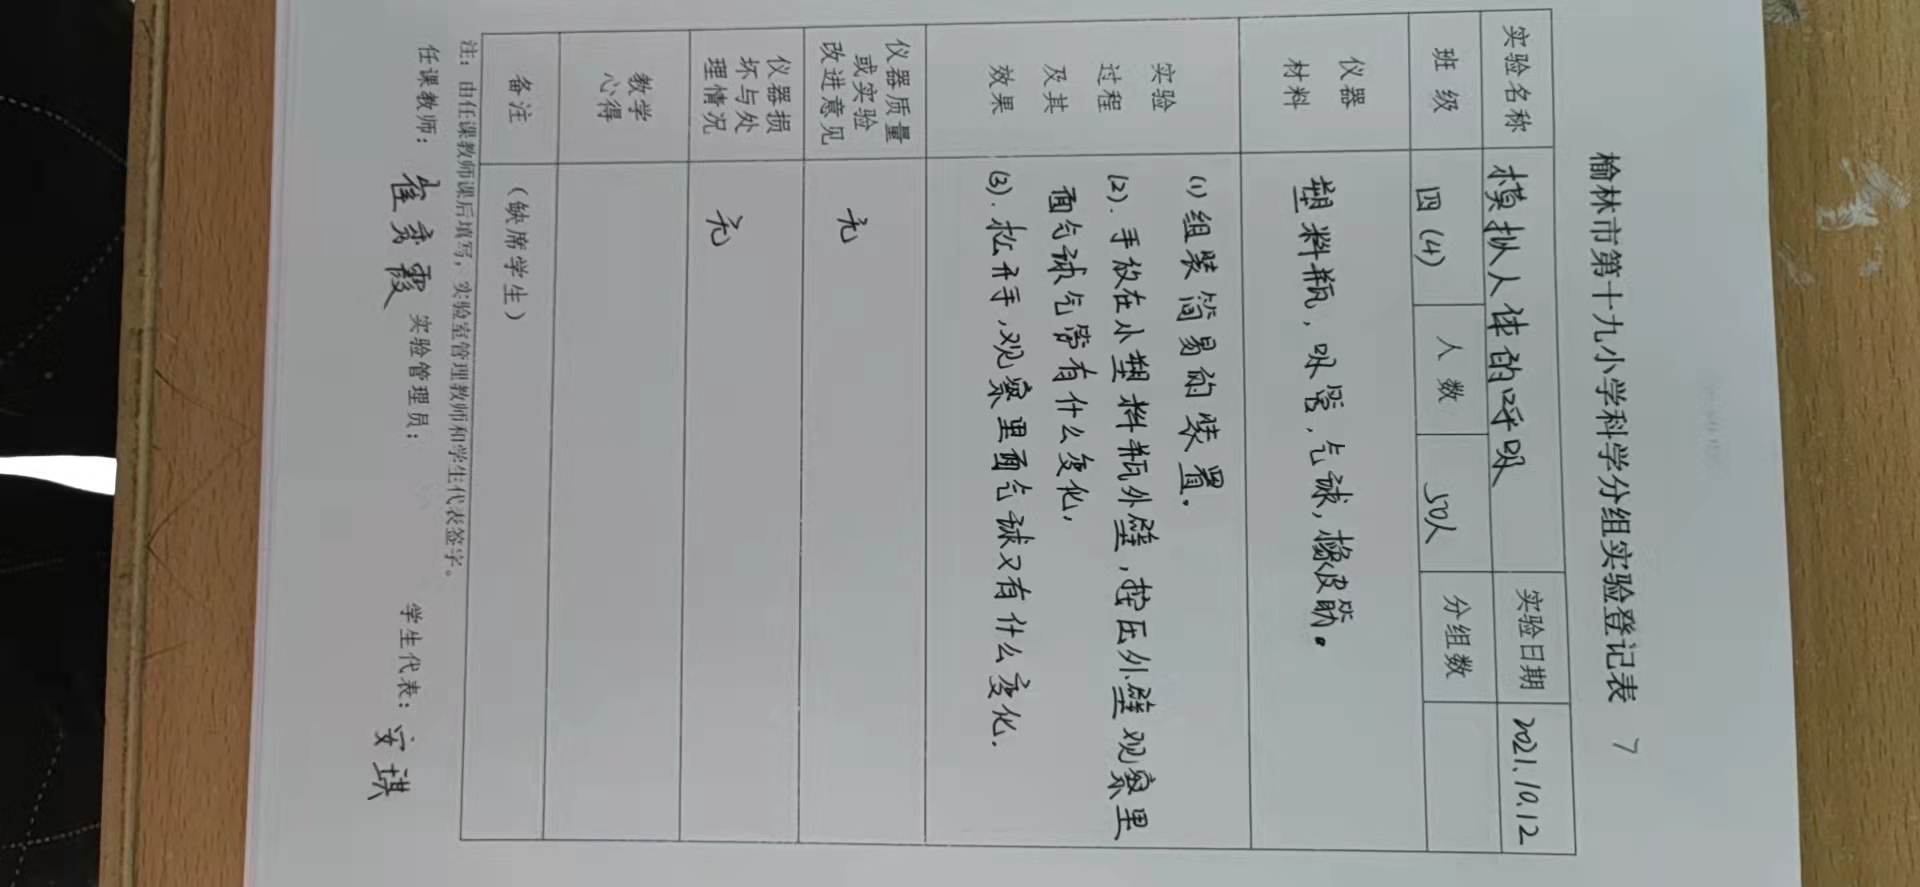 榆林市第十九小学科学分组实验登记表 7
实验名称 模拟人体的呼吸 实验日期 2021.10.12
班级 四(4) 人数 50人 分组数
仪器
材料
塑料瓶，吸管，气球，橡皮筋。
实验
过程
及其
效果
(1)组装简易的装置。
(2).手放在小塑料瓶外壁，挤压外壁观察里
面气球气管有什么变化，
(3).松开手，观察里面气球又有什么变化.
仪器质量
或实验
改进意见
无
仪器损
坏与处
理情况
无
教学
心得
备注 （缺席学生）
注：由任课教师课后填写，实验室管理教师和学生代表签字。
任课教师：崔秀霞 实验管理员： 学生代表：安琪